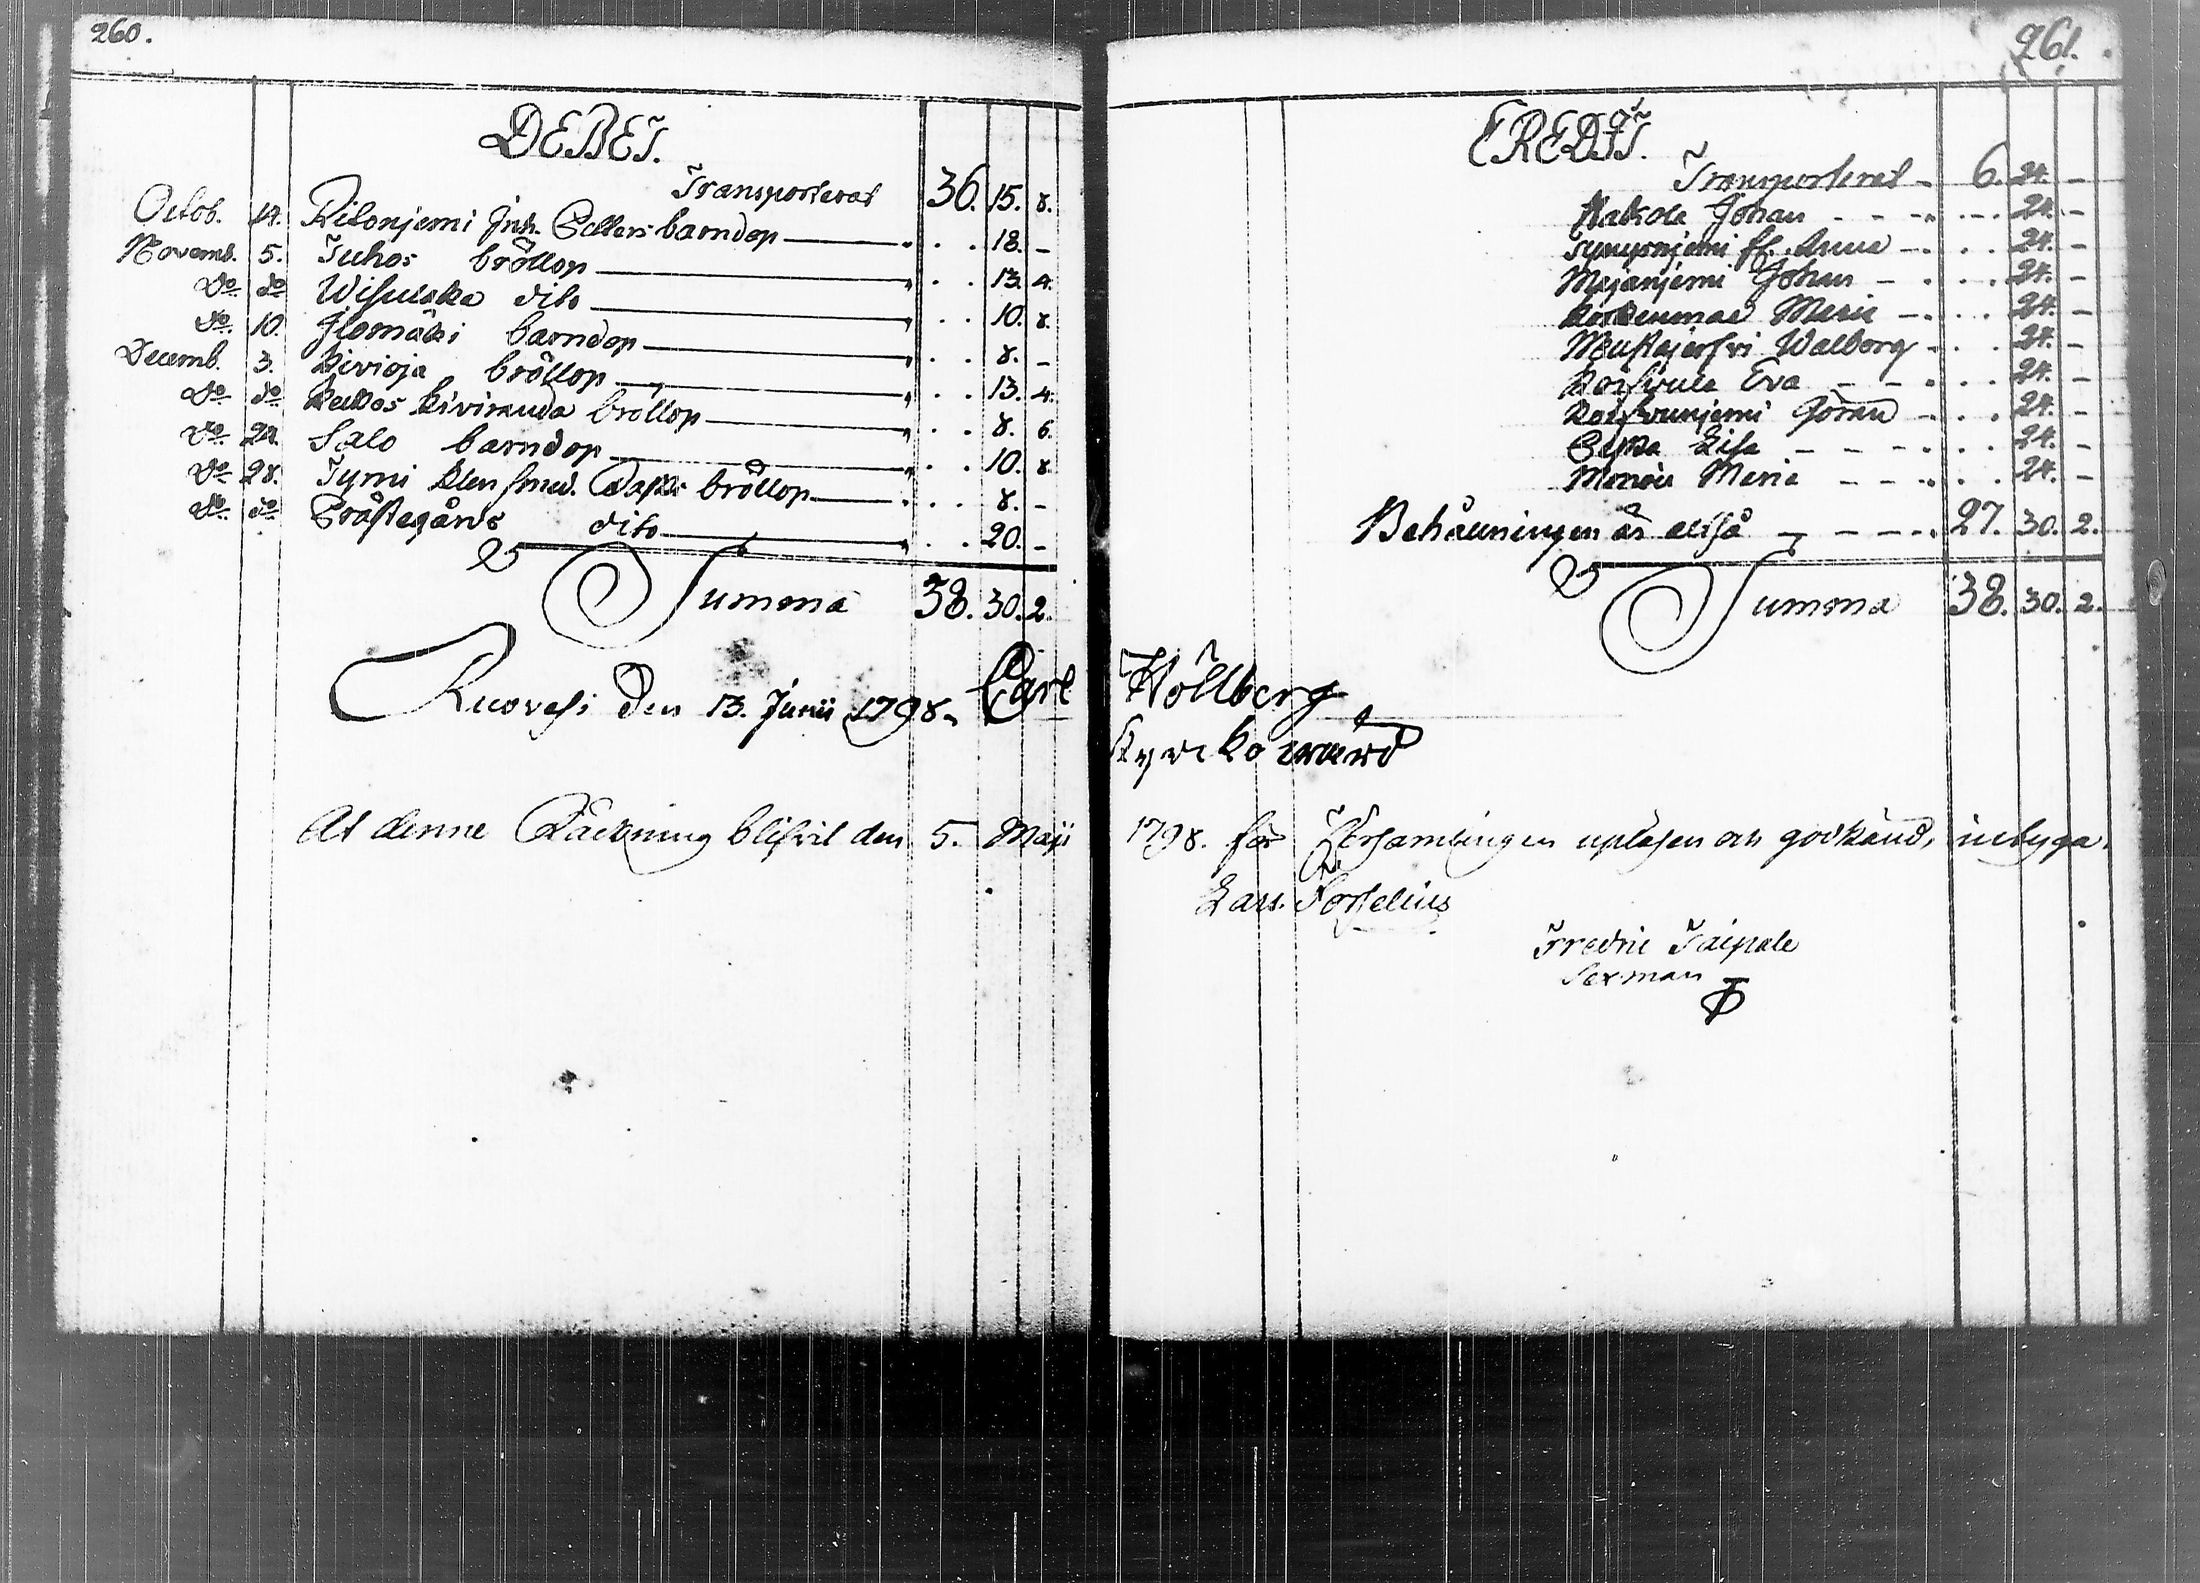 260.
DEBET.
Transporterat 36. 15. 8.
Octob. 14. Ritonjemi Joh. Pellers barndop . . 18. -
Novemb. 5. Juhos bröllop . . 13. 4.
do do Wisuleka dito . . 10. 8.
do. 10. Jlomäki barndop . . 8. -
Decemb. 3. Kivioja bröllop . . 13. 4.
do do Kiviranda bröllop . . 8. 6.
do 24. Salo barndop . . 10. 8.
do 28. Tymi bröllop . . 8. -
do. do Prästegårds dito . . 20. -
Summa 38. 30. 2.
Ruovesi den 13. Junii 1798. Carl Höllberg
Kyrckowärd
At denne Räckning blifvit den 5. Maji 1798. för Församlingen uplesen och godkänd, intyga.
Lars Forselius
Fredric Taipale
Sexman
261.
CREDIT.
Transporterat - 6. 24. -
Johan - - - . . 24. -
Anna - . . 24. -
Majanjemi Johan - . . 24. -
Maria - . . 24. -
Mustajerfvi Walborg - . . 24. -
Eva - - . . 24. -
Göran - . . 24. -
Lisa - - - . . 24. -
Maria - - . . 24. -
Behållningen är altså - - - - 27. 30. 2.
Summa 38. 30. 2.